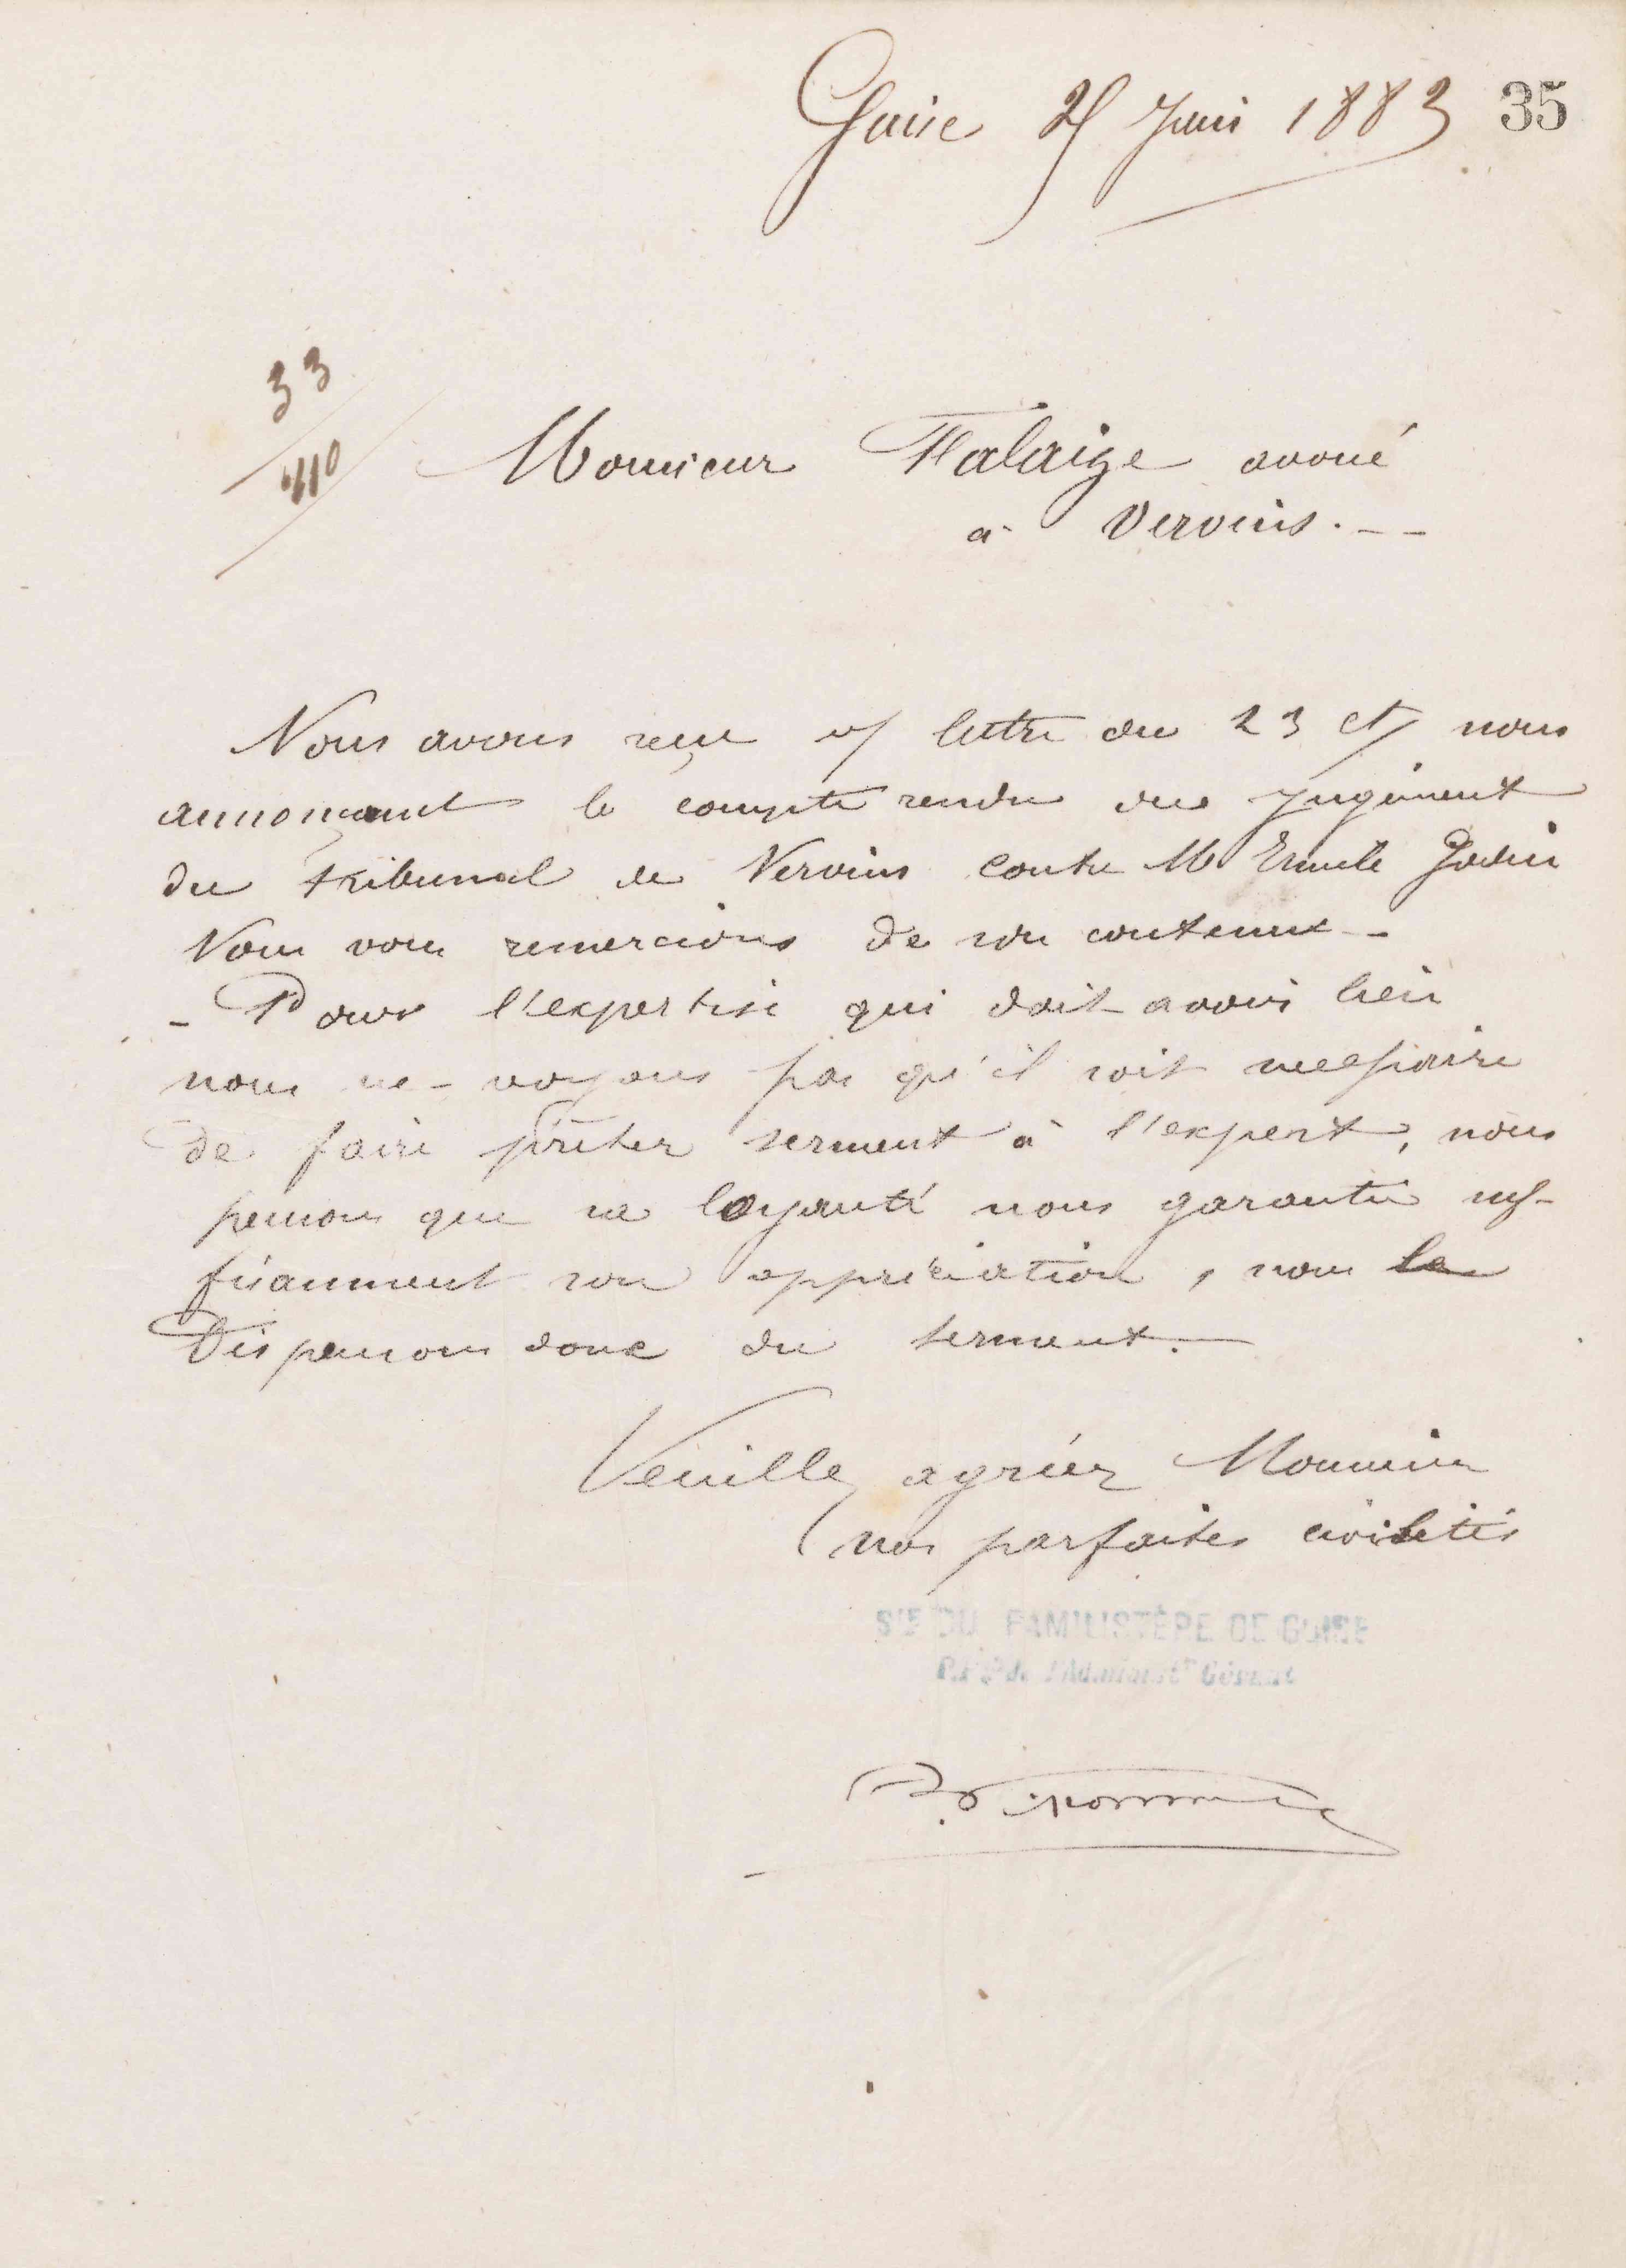 Guise 25 Juin 1883 35
33
410
Monsieur Flalaize avoué
à Vervins. --
Nous avons reçu v/ lettre du 23 ct/ nous
annonçant le compte rendu du jugement
du tribunal de Vervins contre M Emile Godin
Nous vous remercions de son contenu -
- Pour l'expertise qui doit avoir lieu
nous ne voyons pas qu'il soit necessaire
de faire prêter serment à l'expert, nous
pensons que sa loyauté nous garantie suf-
fisamment son appréciation, nous le
Dispensons donc du serment. -
Veuillez agréer Monsieur
nos parfaites civilités
STE DU FAMILISTÈRE DE GUISE